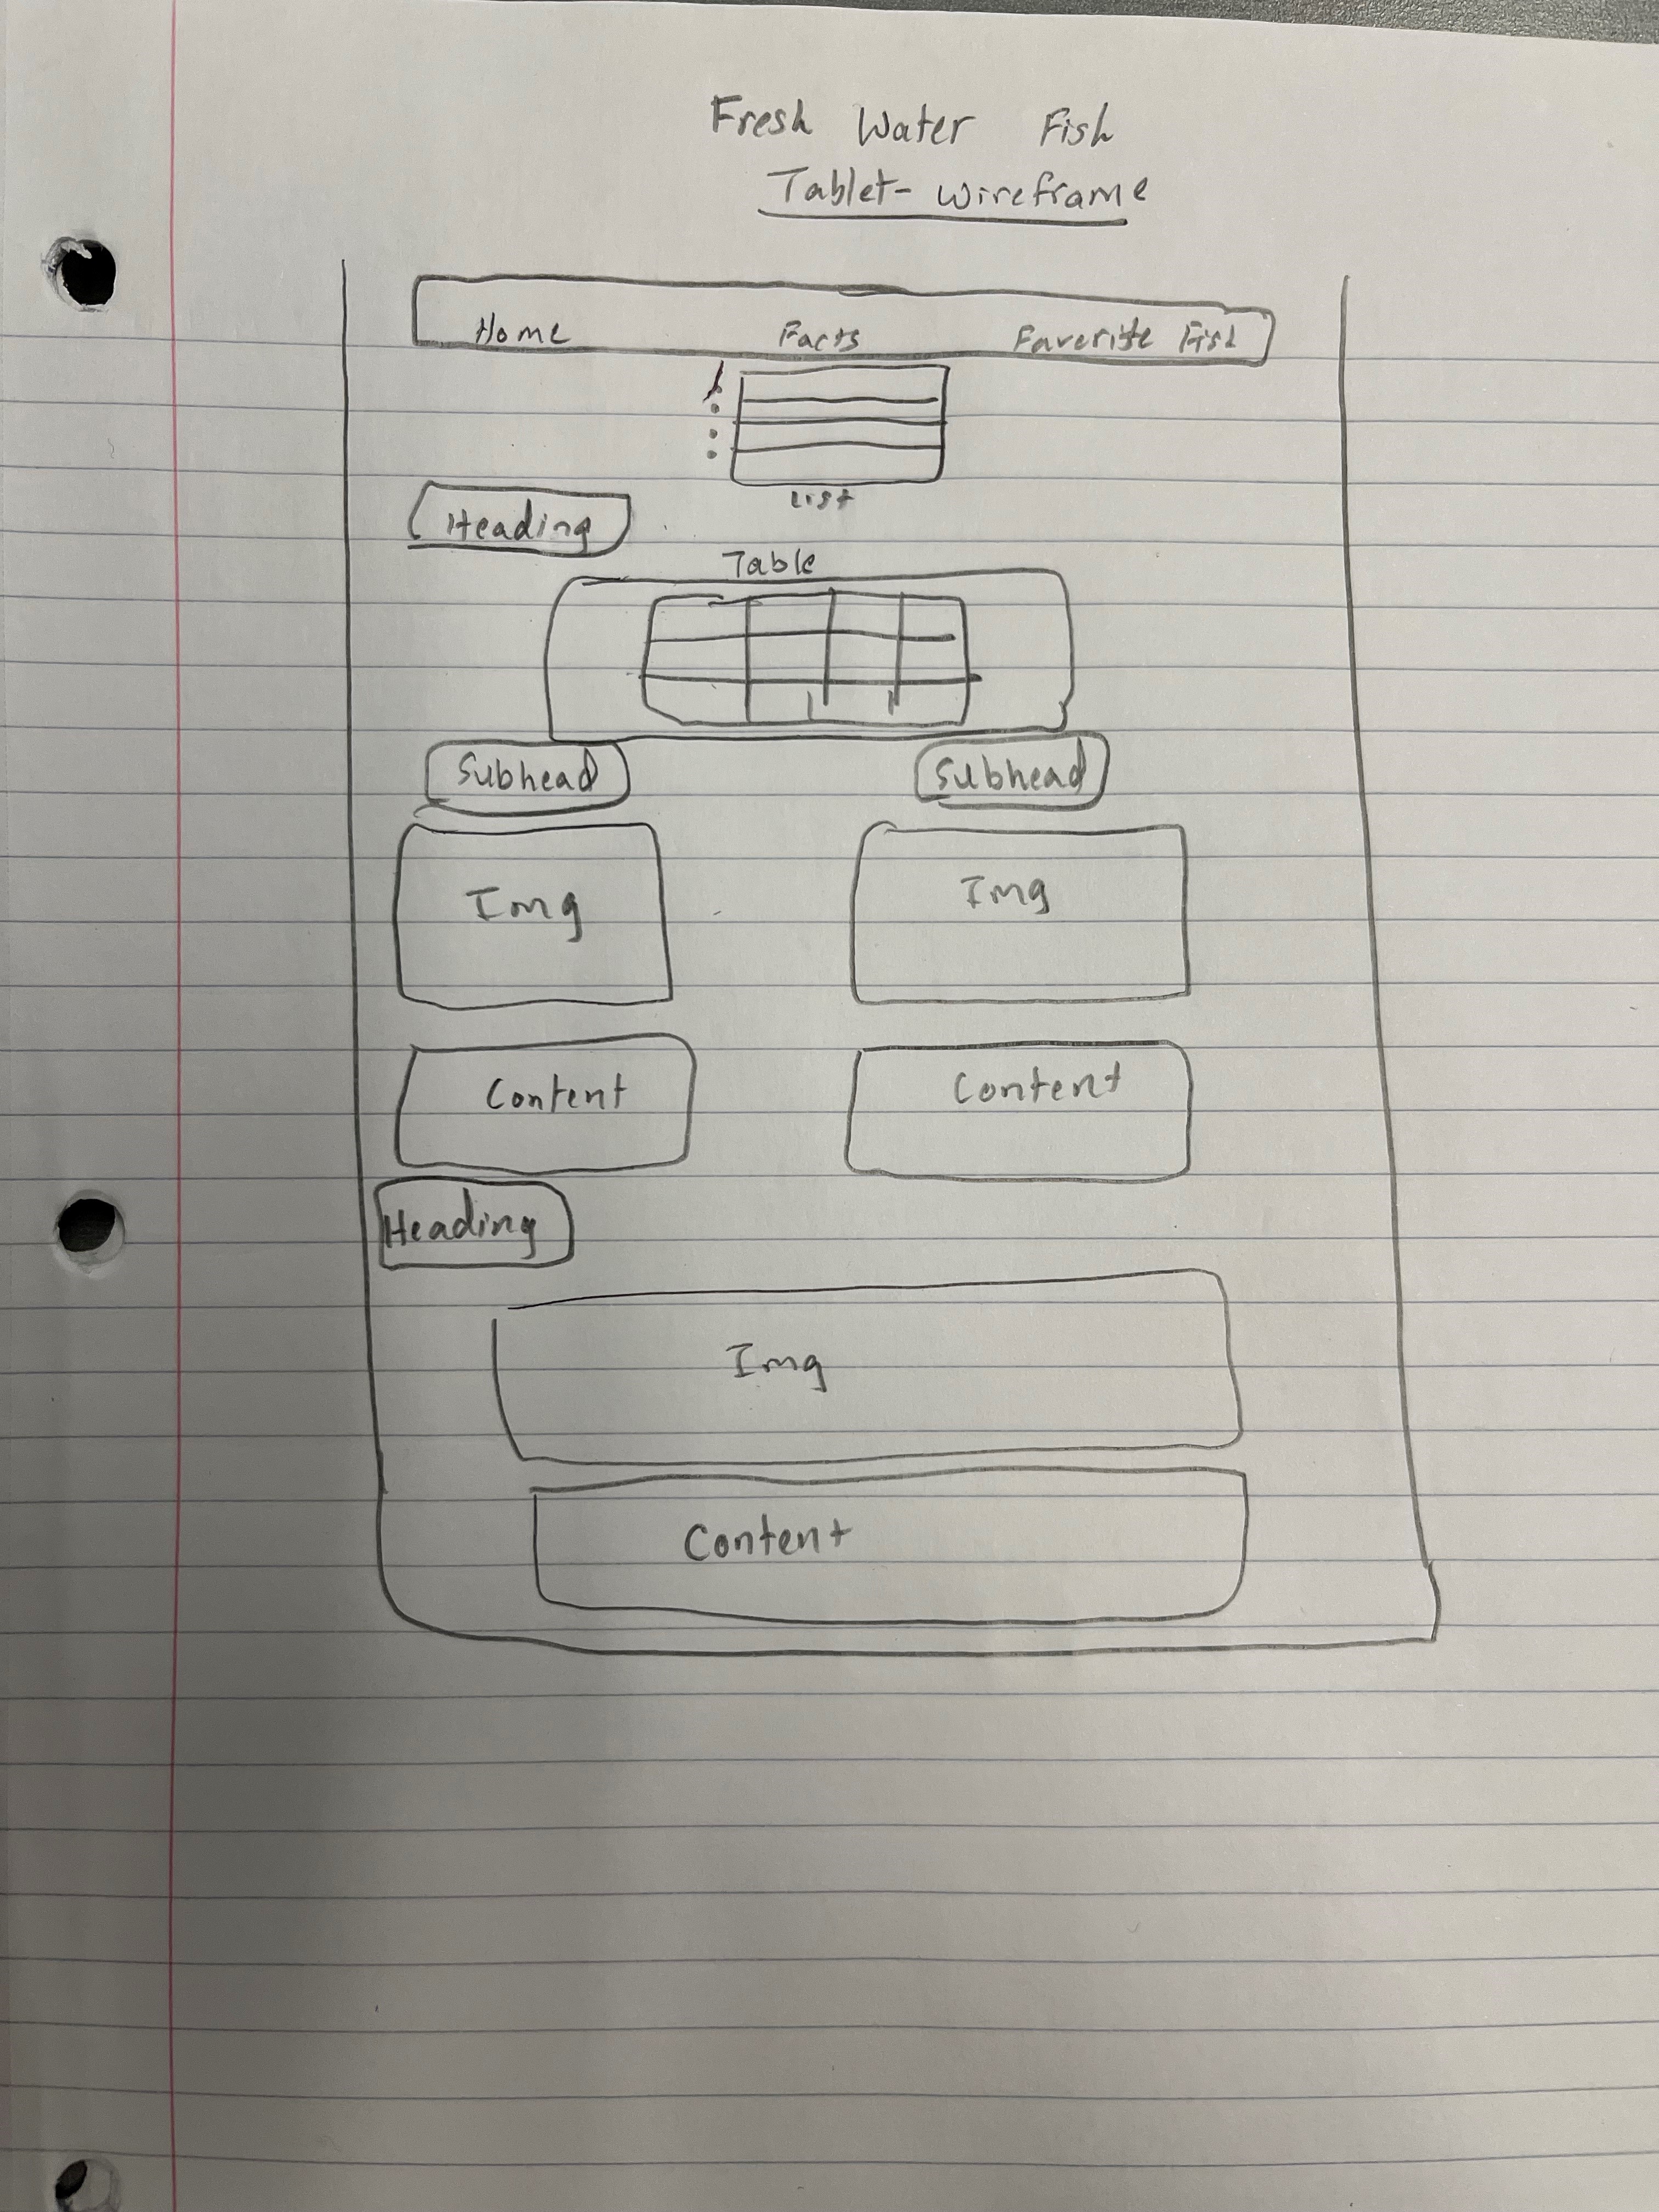 Fresh Water Fish
Tablet- wireframe
Home Facts Faverite Fish
List
Heading
Table
Subhead Subhead
Img Img
Content Content
Heading
Img
Content